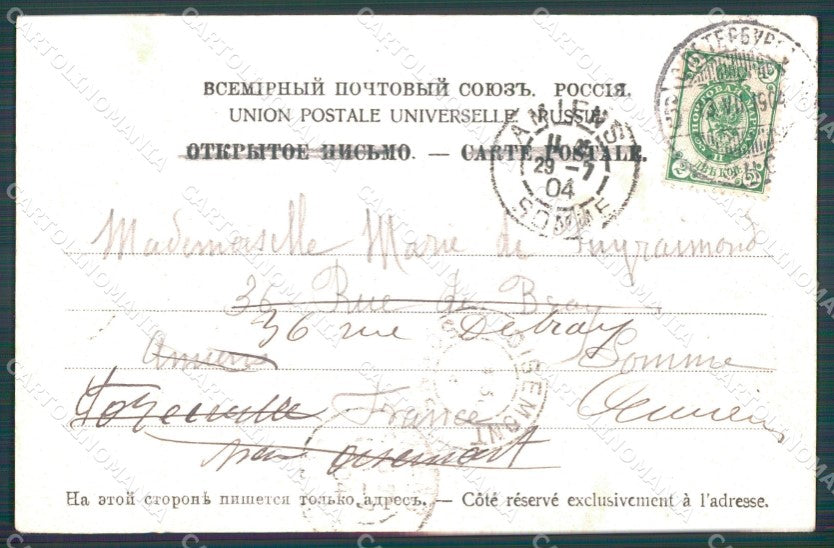 ВСЕМІРНЫЙ ПОЧТОВЫЙ СОЮЗЪ. РОССІЯ.
UNION POSTALE UNIVERSELLE. RUSSIE
ОТКРЫТОЕ ПИСЬМО. — CARTE POSTALE.
AMIENS
29 - 7
04
SOMME
ПОЧТОВАЯ МАРКА
2 ДВѢ КОП. 2
Mademoiselle Marie de Puyraimond
36 Rue de Bray
36 rue Debray
Amiens Somme
France Amiens
OISEMONT
par Oisemont
На этой сторонѣ пишется только адресъ. — Côté réservé exclusivement à l'adresse.
CARTOLINOMANIA